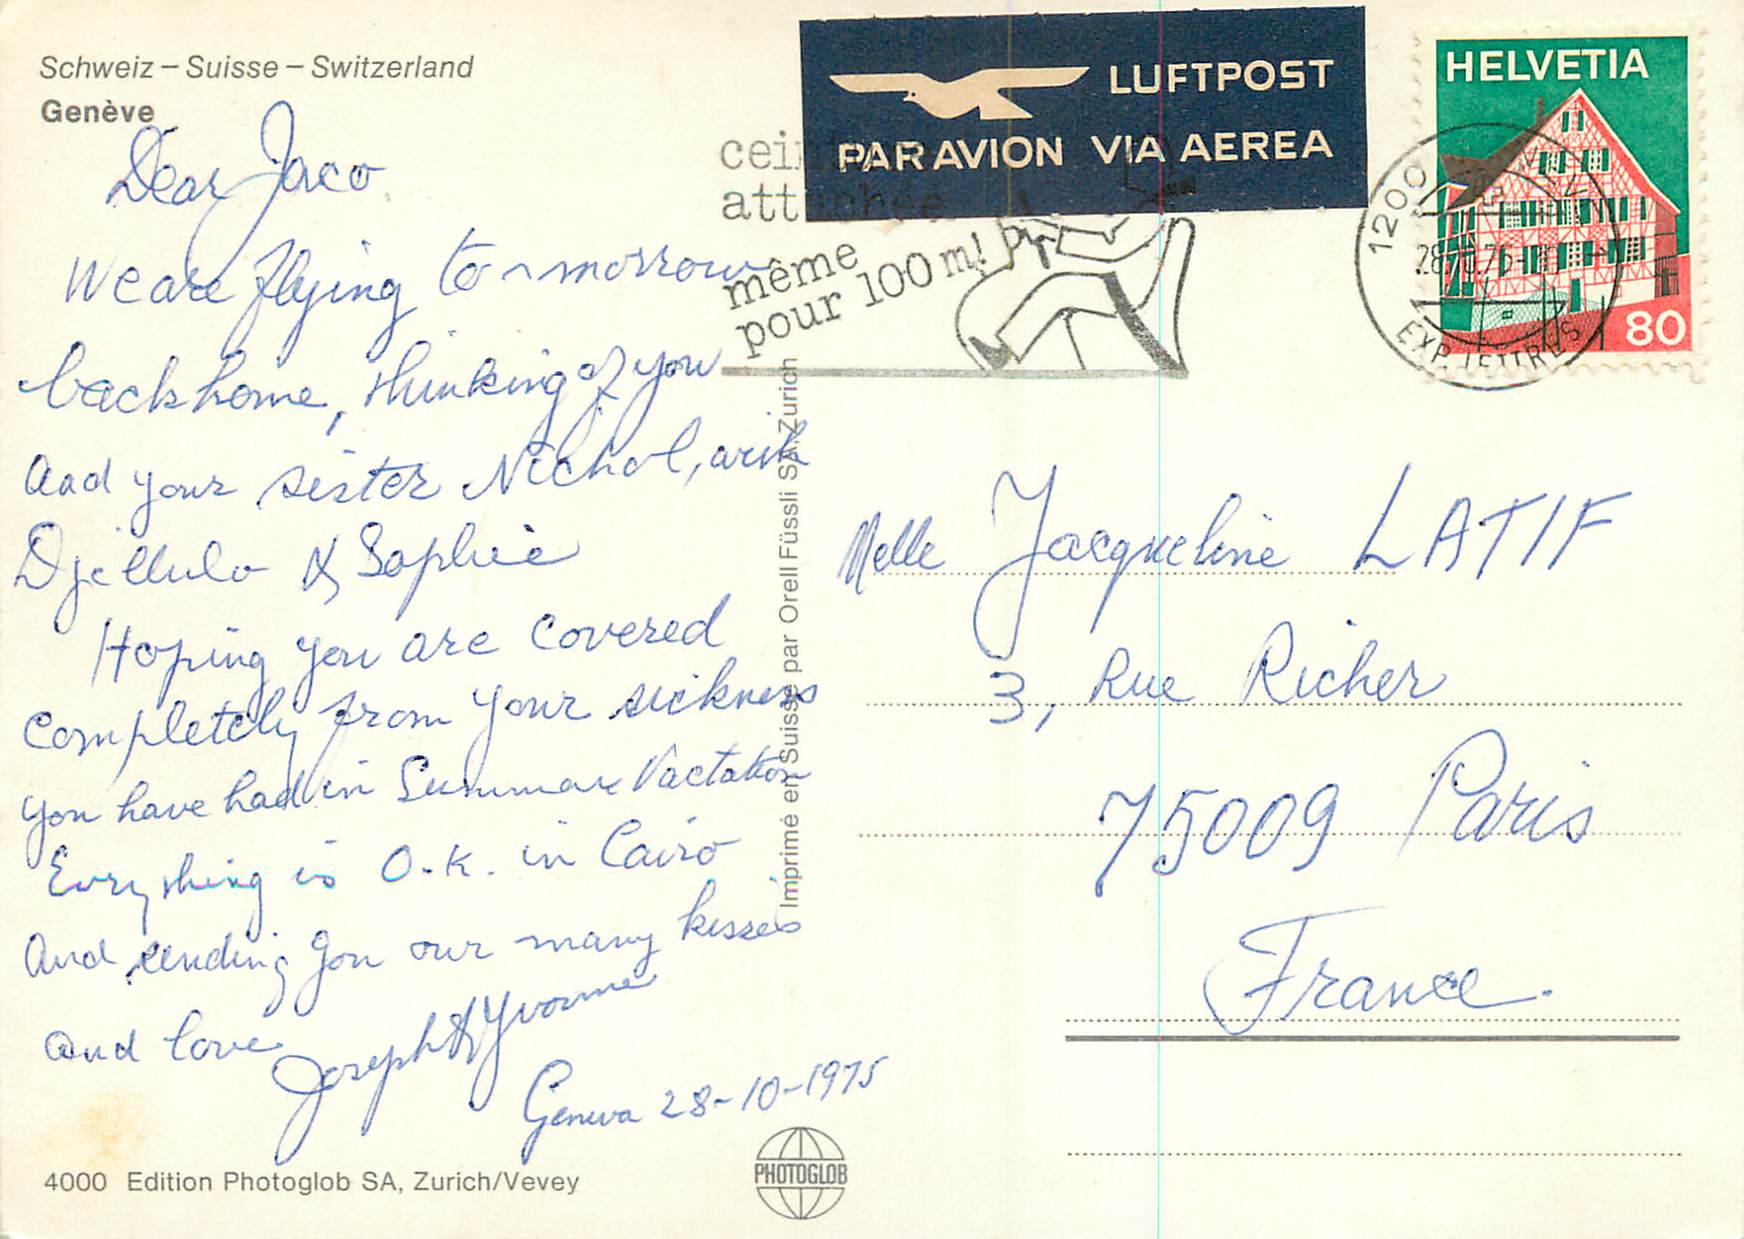 Schweiz – Suisse – Switzerland
Genève
Dear Jaco
We are flying to-morrow
back home, thinking of you
and your sister Nichol, with
& Sophie
Hoping you are covered
completely from your sickness
you have had in Summar Vactation
Everything is O.K. in Cairo
And sending you our many kisses
and love
Joseph & Yvonne
Geneva 28-10-1975
4000 Edition Photoglob SA, Zurich/Vevey
PHOTOGLOB
Imprimé en Suisse par Orell Füssli SA, Zurich
LUFTPOST
PAR AVION VIA AEREA
attachée
même
pour 100 m!
HELVETIA
80
1200
EXP. LETTRES
Melle Jacqueline LATIF
3, Rue Richer
75009 Paris
France.